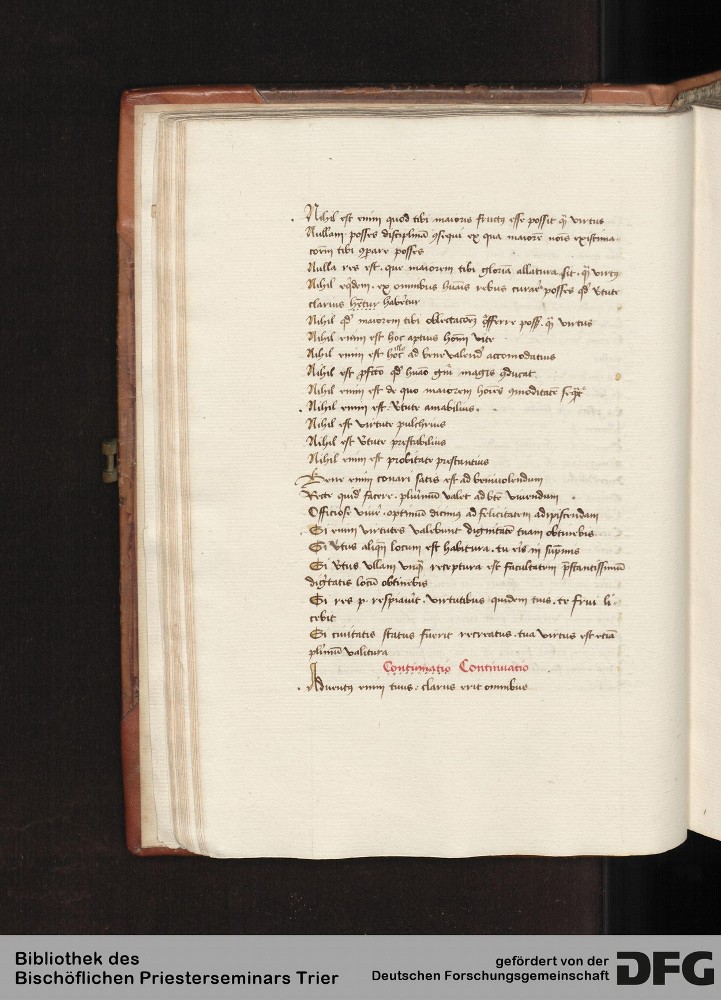 Nihil est enim quod tibi maioris fructꝯ esse possit qͫ virtus
Nullam posses disciplinā ꝯsequi ex qua maiorē nōis existima
coēm tibi ꝯpare posses
Nulla res est, que maiorem tibi gloriā allatura sit, qͫ virtꝯ
Nihil eqͥdem, ex omnibus huāis rebus curare posses qd̕ v̕tute
clarius hētur habetur
Nihil qd̕ maiorem tibi oblectacoēꝫ afferre poss͛, qͫ virtus
Nihil enim est hoc aptius hoīm vite
Nihil enim est hoc ad benevalend̕ accomodatius
Nihil est ꝓfecto qd̕ huāo gn̄i magis ꝯducat
Nihil enim est de quo maiorem hoīes ꝯmoditatē
Nihil enim est v̕tute amabilius.
Nihil est virtute pulchrius
Nihil est v̕tute prestabilius
Nihil enim est probitate prestantius
Bene enim conari satis est ad benivolendum
Recte quid facere, plurimū valet ad bn̄ vivendum
Officiose viver̕, optimum dicimꝯ ad felicitatem adipiscendam
Si enim virtutes valebunt dignitatē tuam obtinebis
Si v̕tus aliqn̄ locum est habitura, tu eris in supmis
Si v̕tus ullam unqͫ receptura est facultatem p̄stantissimum
dignitatis locū obtinebis
Si res p. respiravit, virtutibus quidem tuis, te frui li
cebit
Si civitatis status fuerit recreatus, tua virtus est etiā
plurimū valitura
Continuatio Continuatio
Adventꝯ enim tuus, clarus erit omnibus
Bibliothek des
Bischöflichen Priesterseminars Trier
gefördert von der
Deutschen Forschungsgemeinschaft
DFG